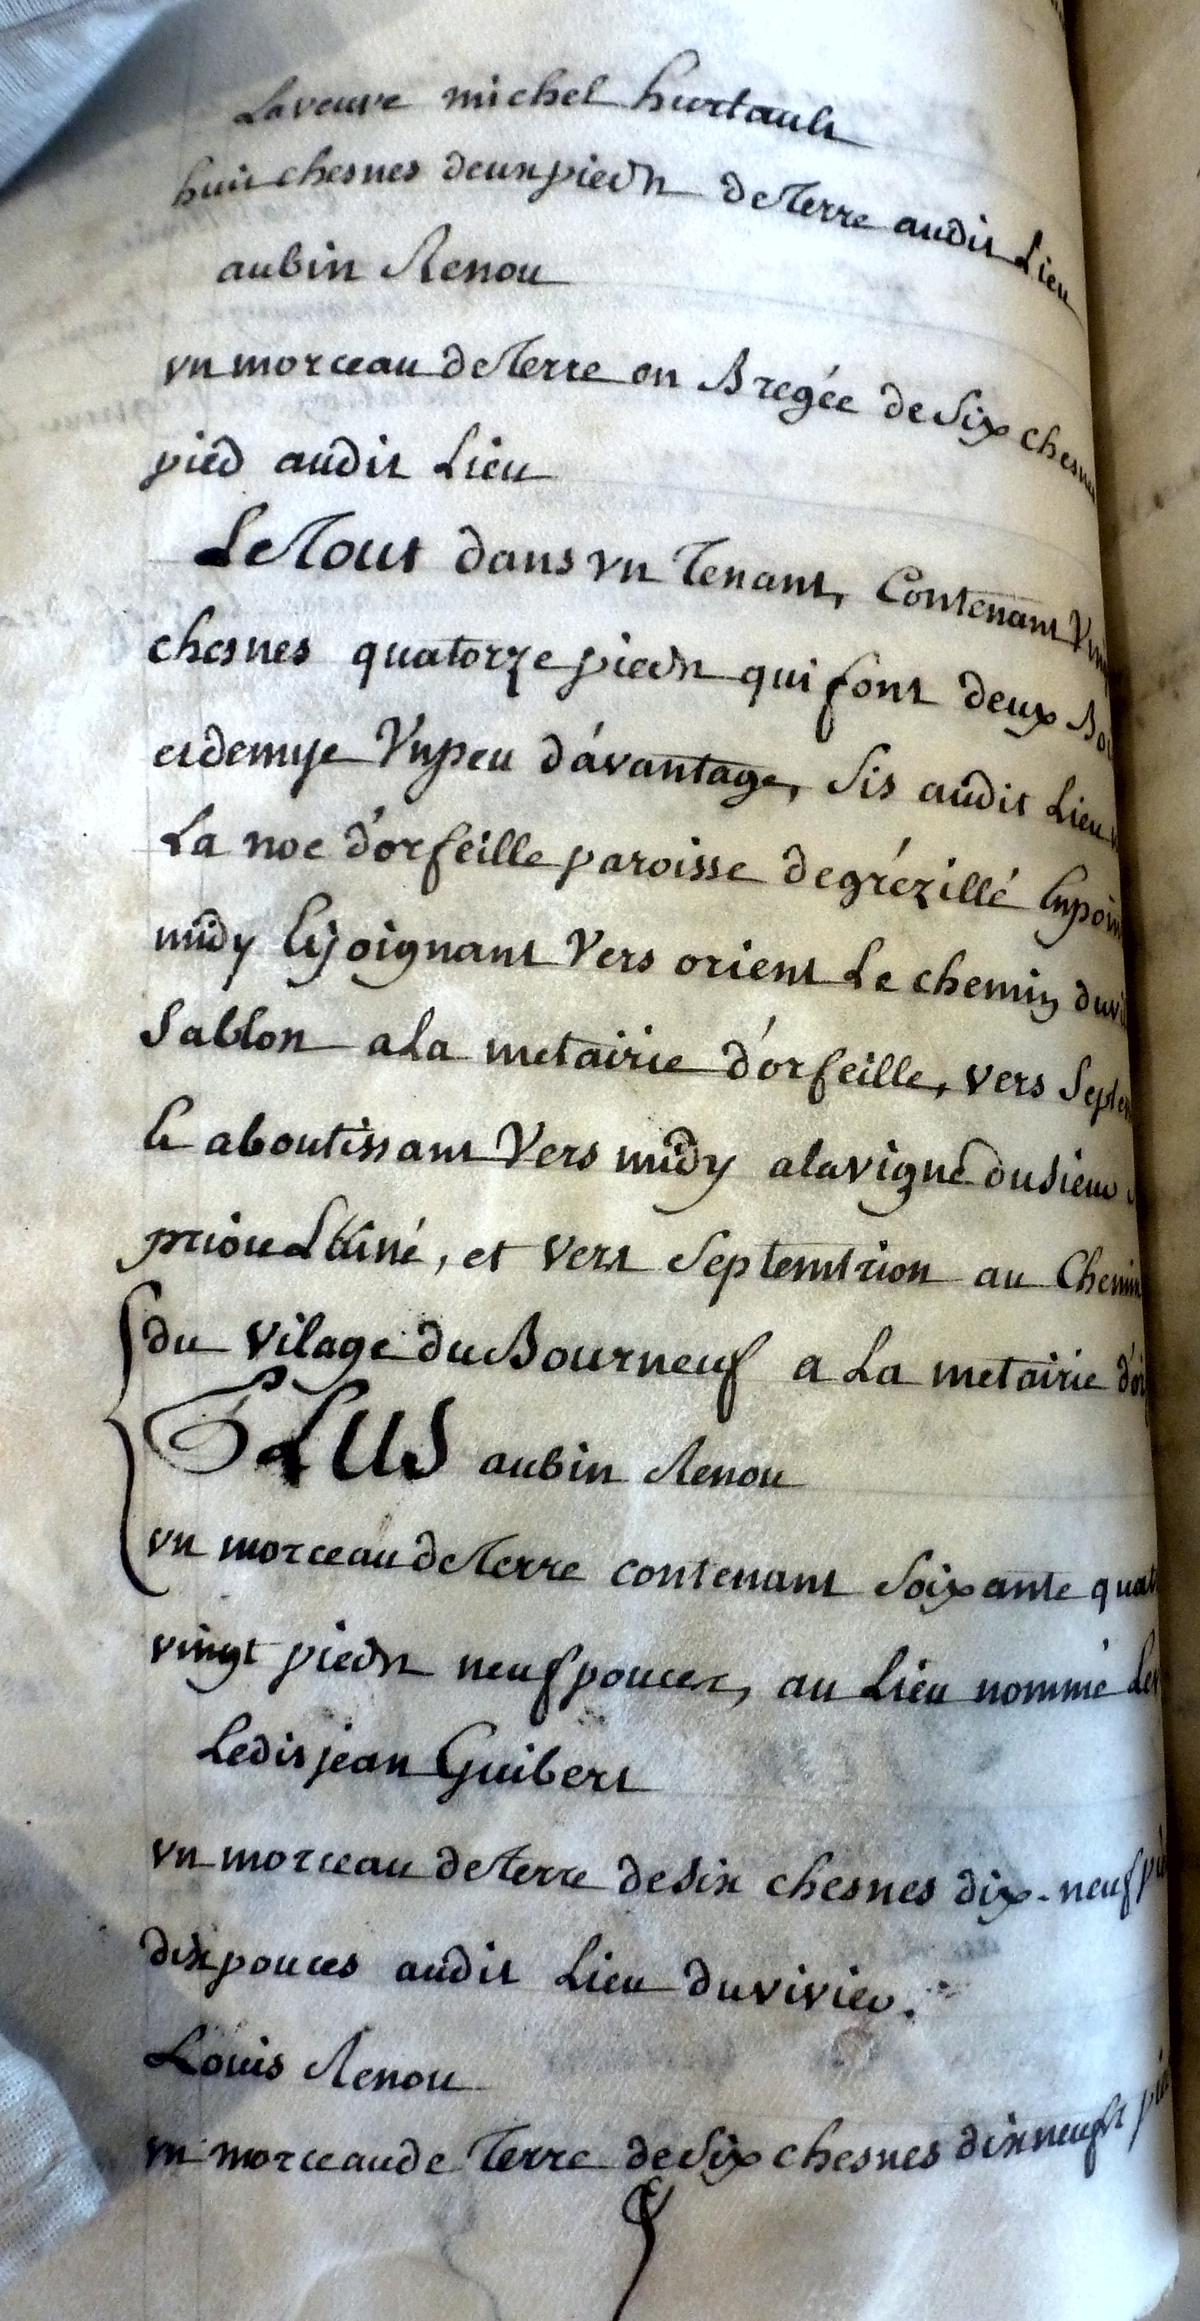 La veuve michel hurtault
huit chesnes deux pieds de Terre audit Lieu
aubin Renou
vn morceau de Terre en Bregée de Six chesnes
pied audit Lieu
Le Tout dans vn Tenant, Contenant
chesnes quatorze pieds qui font deux
et demye Vn peu d'avantage, Sis audit Lieu
La noe d'orfeille paroisse de grézillé
midy Et joignant Vers orient Le chemin
Sablon a La metairie d'orfeille, vers
Et aboutissant Vers midy a la vigne du Sieur
prioul, et vers Septentrion au Chemin
du vilage du Bourneuf a La metairie
PLUS aubin Renou
vn morceau de Terre contenant Soixante
vingt pieds neuf pouces, au Lieu nommé
Ledit jean Guibert
vn morceau de Terre de Six chesnes dix-neuf
dix pouces audit Lieu du vivier.
Louis Renou
vn morceau de Terre de Six chesnes dix neuf